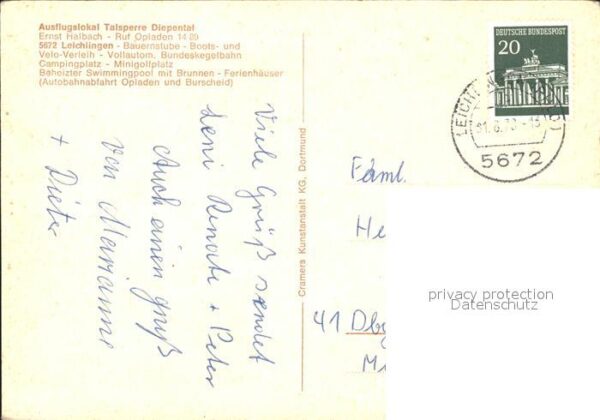 Ausflugslokal Talsperre Diepental
Ernst Halbach - Ruf Opladen 14 89
5672 Leichlingen - Bauernstube - Boots- und
Velo-Verleih - Vollautom. Bundeskegelbahn
Campingplatz - Minigolfplatz
Beheizter Swimmingpool mit Brunnen - Ferienhäuser
(Autobahnabfahrt Opladen und Burscheid)
Viele Grüß sendet
Renate + Peter
Auch einen gruß
von Marianne
+ Dieter
Cramers Kunstanstalt KG, Dortmund
DEUTSCHE BUNDESPOST
20
5672
Faml.
He
41 Dbg
privacy protection
Datenschutz